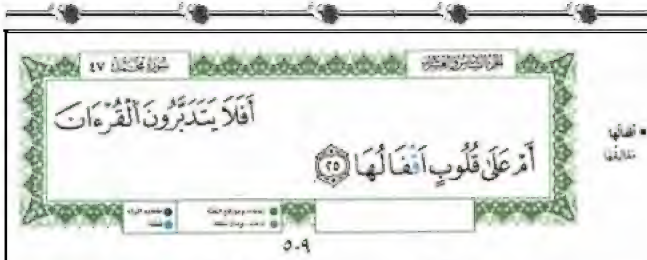 سُورَةُ مُحَمَّدٍ ٤٧
الجزء السادس والعشرون
أَفَلَا يَتَدَبَّرُونَ اَلْقُرْءَانَ
أَمْ عَلَىٰ قُلُوبٍ اَقْفَالُهَا ٢٥
■ أقفالها
مغاليقها
٥٠٩